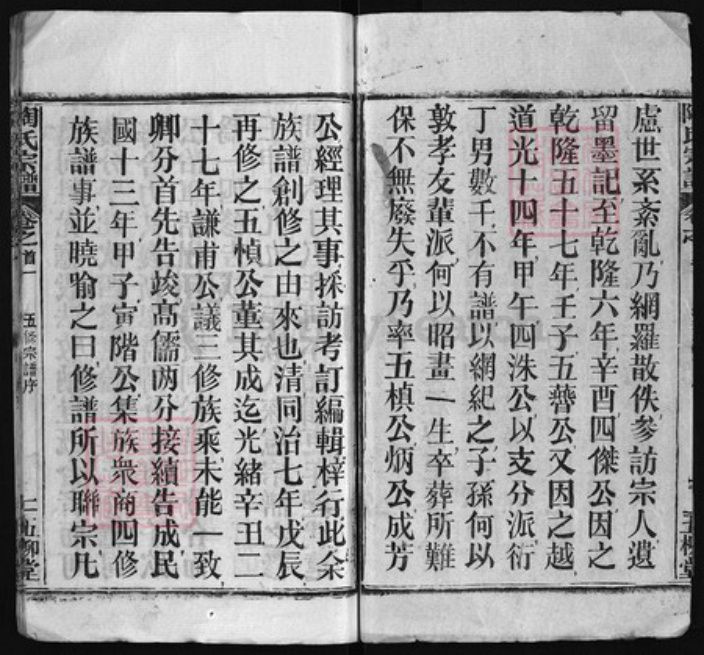 慮世系紊亂乃網羅散佚參訪宗人遺
留墨記至乾隆六年辛酉四傑公因之
乾隆五十七年壬子五聲公又因之越
道光十四年甲午四洙公以支分派衍
丁男數千不有譜以綱紀之子孫何以
敦孝友輩派何以昭畫一生卒葬所難
保不無廢失乎乃率五楨公炳公成芳
公經理其事採訪考訂編輯梓行此余
族譜創修之由來也清同治七年戊辰
再修之五楨公董其成迄光緒辛丑二
十七年謙甫公議三修族乘未能一致
卿分首先告竣高儒兩分接續告成民
國十三年甲子寅階公集族衆商四修
族譜事並曉喻之曰修譜所以聯宗凡
陶氏宗譜
卷之首一
五修宗譜序
二
五柳堂